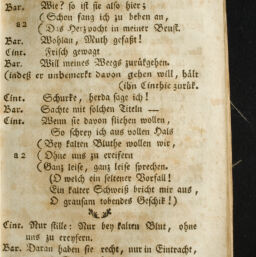 Bar. Wie? so ist sie also hier;
(Schon fang ich zu beben an,
a 2
(Das Herz pocht in meiner Brust.
Bar. Wohlan, Muth gefaßt!
Cint. Frisch gewagt
Bar. Will meines Weegs zurükgehen.
(indeß er unbemerkt davon gehen will, hält
(ihn Cinthie zurük.
Cint. Schurke, herda sage ich!
Bar. Sachte mit solchen Titeln —
Cint. Wenn sie davon fliehen wollen,
So schrey ich aus vollen Hals
(Bey kalten Bluthe wollen wir,
a 2 (Ohne uns zu ereifern
(Ganz leise, ganz leise sprechen.
(O welch ein seltener Vorfall!
Ein kalter Schweiß bricht mir aus,
O grausam tobendes Geschik!)
Cint. Nur stille: Nur bey kalten Blut, ohne
uns zu ereyfern.
Bar. Daran haben sie recht, nur in Eintracht,